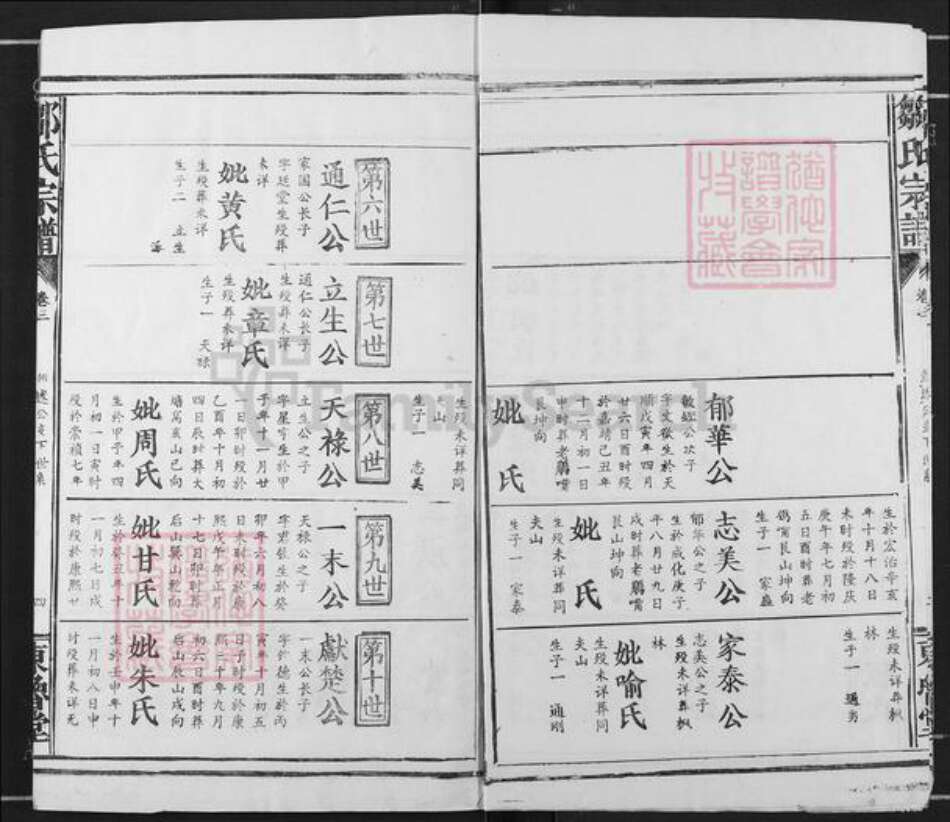 鄒氏宗譜
卷之
郁華公
敏經公次子
字文嶽生於天
順戊寅年四月
廿六日酉時歿
於嘉靖己丑年
十二月初一日
申時葬老鸛嘴
艮坤向
妣 氏
生歿未詳葬同
山
生子一 志美
生於宏治辛亥
年十月十八日
未時歿於隆慶
庚午年七月初
五日酉時葬老
鸛嘴艮山坤向
生子一 家盛
志美公
郁華公之子
生於成化庚子
年八月廿九日
戌時葬老鸛嘴
艮山坤向
妣 氏
生歿未詳葬同
夫山
生子一 家泰
生歿未詳葬楓
林
生子一 通勇
家泰公
志美公之子
生歿未詳葬楓
林
妣喻氏
生歿未詳葬同
夫山
生子一 通剛
第六世
通仁公
家國公長子
字廷堂生歿葬
未詳
妣黃氏
生歿葬未詳
生子二 立生
第七世
立生公
通仁公長子
生歿葬未詳
妣章氏
生歿葬未詳
生子一 天祿
第八世
天祿公
立生公之子
字星亨生於甲
子年十一月廿
一日卯時歿於
乙酉年十月初
四日辰時葬大
塘嵩亥山巳向
妣周氏
生於甲子年四
月初一日寅時
歿於崇禎七年
第九世
一末公
天祿公之子
字君張生於癸
卯年六月初八
日未時歿於康
熙戊午年正月
十七日卯時葬
后山巽山乾向
妣甘氏
生於癸丑年十
一月初七日戌
時歿於康熙廿
第十世
獻楚公
一末公長子
字作德生於丙
寅年十月初五
日子時歿於康
熙二十年九月
初六日酉時葬
后山辰山戌向
妣朱氏
生於壬申年十
一月初八日申
時歿葬未詳无
鄒氏宗譜
卷三
四
東魯堂